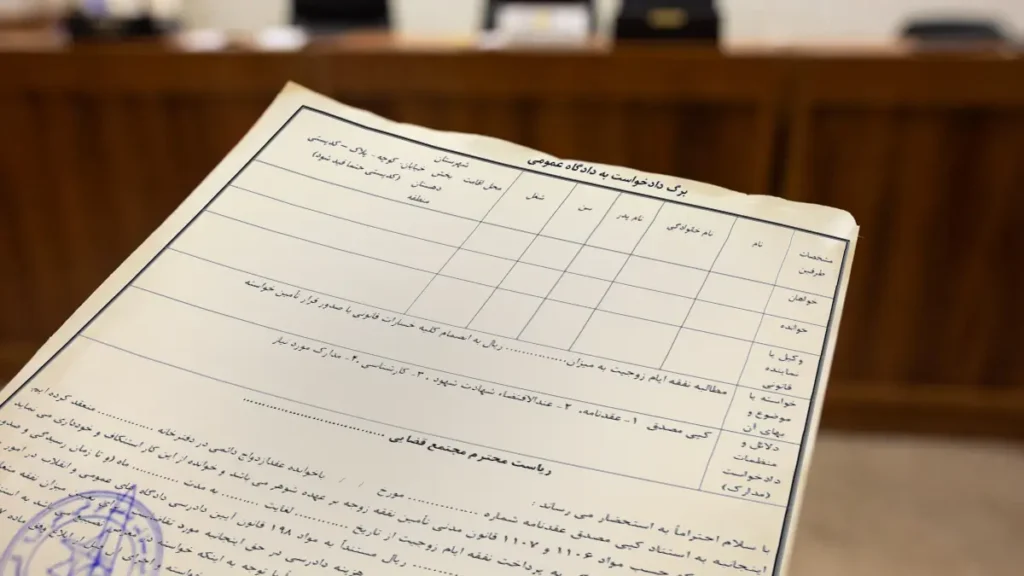 برگ دادخواست به دادگاه عمومی
مشخصات
طرفین
نام
نام خانوادگی
نام پدر
سن
شغل
محل اقامت
شهرستان
بخش
خیابان - کوچه - پلاک - کدپستی
دهستان
(کدپستی حتما قید شود)
منطقه
خواهان
خوانده
وکیل یا
نماینده
قانونی
خواسته یا
موضوع و
بهای آن
مطالبه نفقه ایام زوجیت به میزان................ ریال به انضمام کلیه خسارات قانونی با صدور قرار تأمین خواسته
دلائل و
منظمات
دادخواست
(مدارک)
کپی مصدق ۱- عقدنامه، ۲- عندالاقتضاء شهادت شهود ۳۰- کارشناسی ۴- مدارک مورد نیاز
ریاست محترم مجتمع قضایی ................................
با سلام احتراماً به استحضار می رساند :
اینجانبه به استناد کپی مصدق عقدنامه شماره .................. مورخ / / باخوانده عقدازدواج دائمی در دفترخانه ............ منعقد کرده ایم
حسب مواد ۱۱۰۶ و ۱۱۰۷ قانون مدنی تأمین نفقه زوجه بر عهده شوهر می باشد و خوانده از این کار استنکاف و خودداری می نماید
به پرداخت نفقه ایام زوجیت از تاریخ .............. لغایت ............ به مدت ........ ماه (و تا زمان رسیدگی و صدور
ریال مستنداً به مواد ۱۹۸ قانون آیین دادرسی دادگاه های عمومی و انقلاب در امور
هزینه دادرسی در حق اینجانبه مورد میزان نفقه
با توجه به اینکه